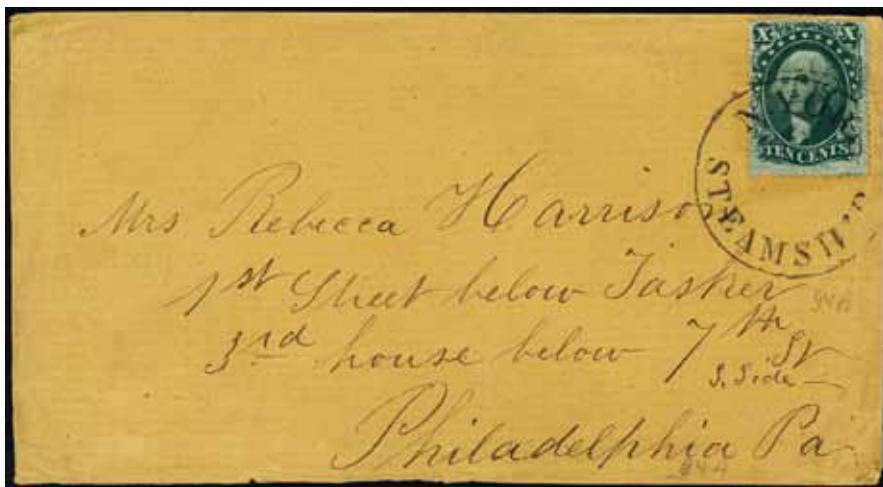 X X
TEN CENTS
N.YORK
STEAMSHIP
Mrs Rebecca Harrison
1st Street below Tasker
3rd house below 7th St
S. Side
Philadelphia Pa